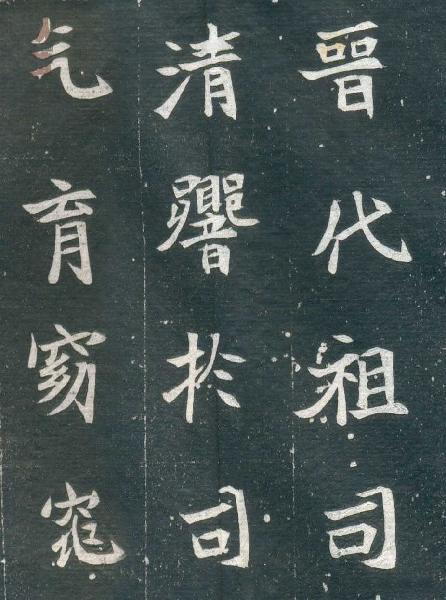 晉代祖司
清響於司
气育窈窕